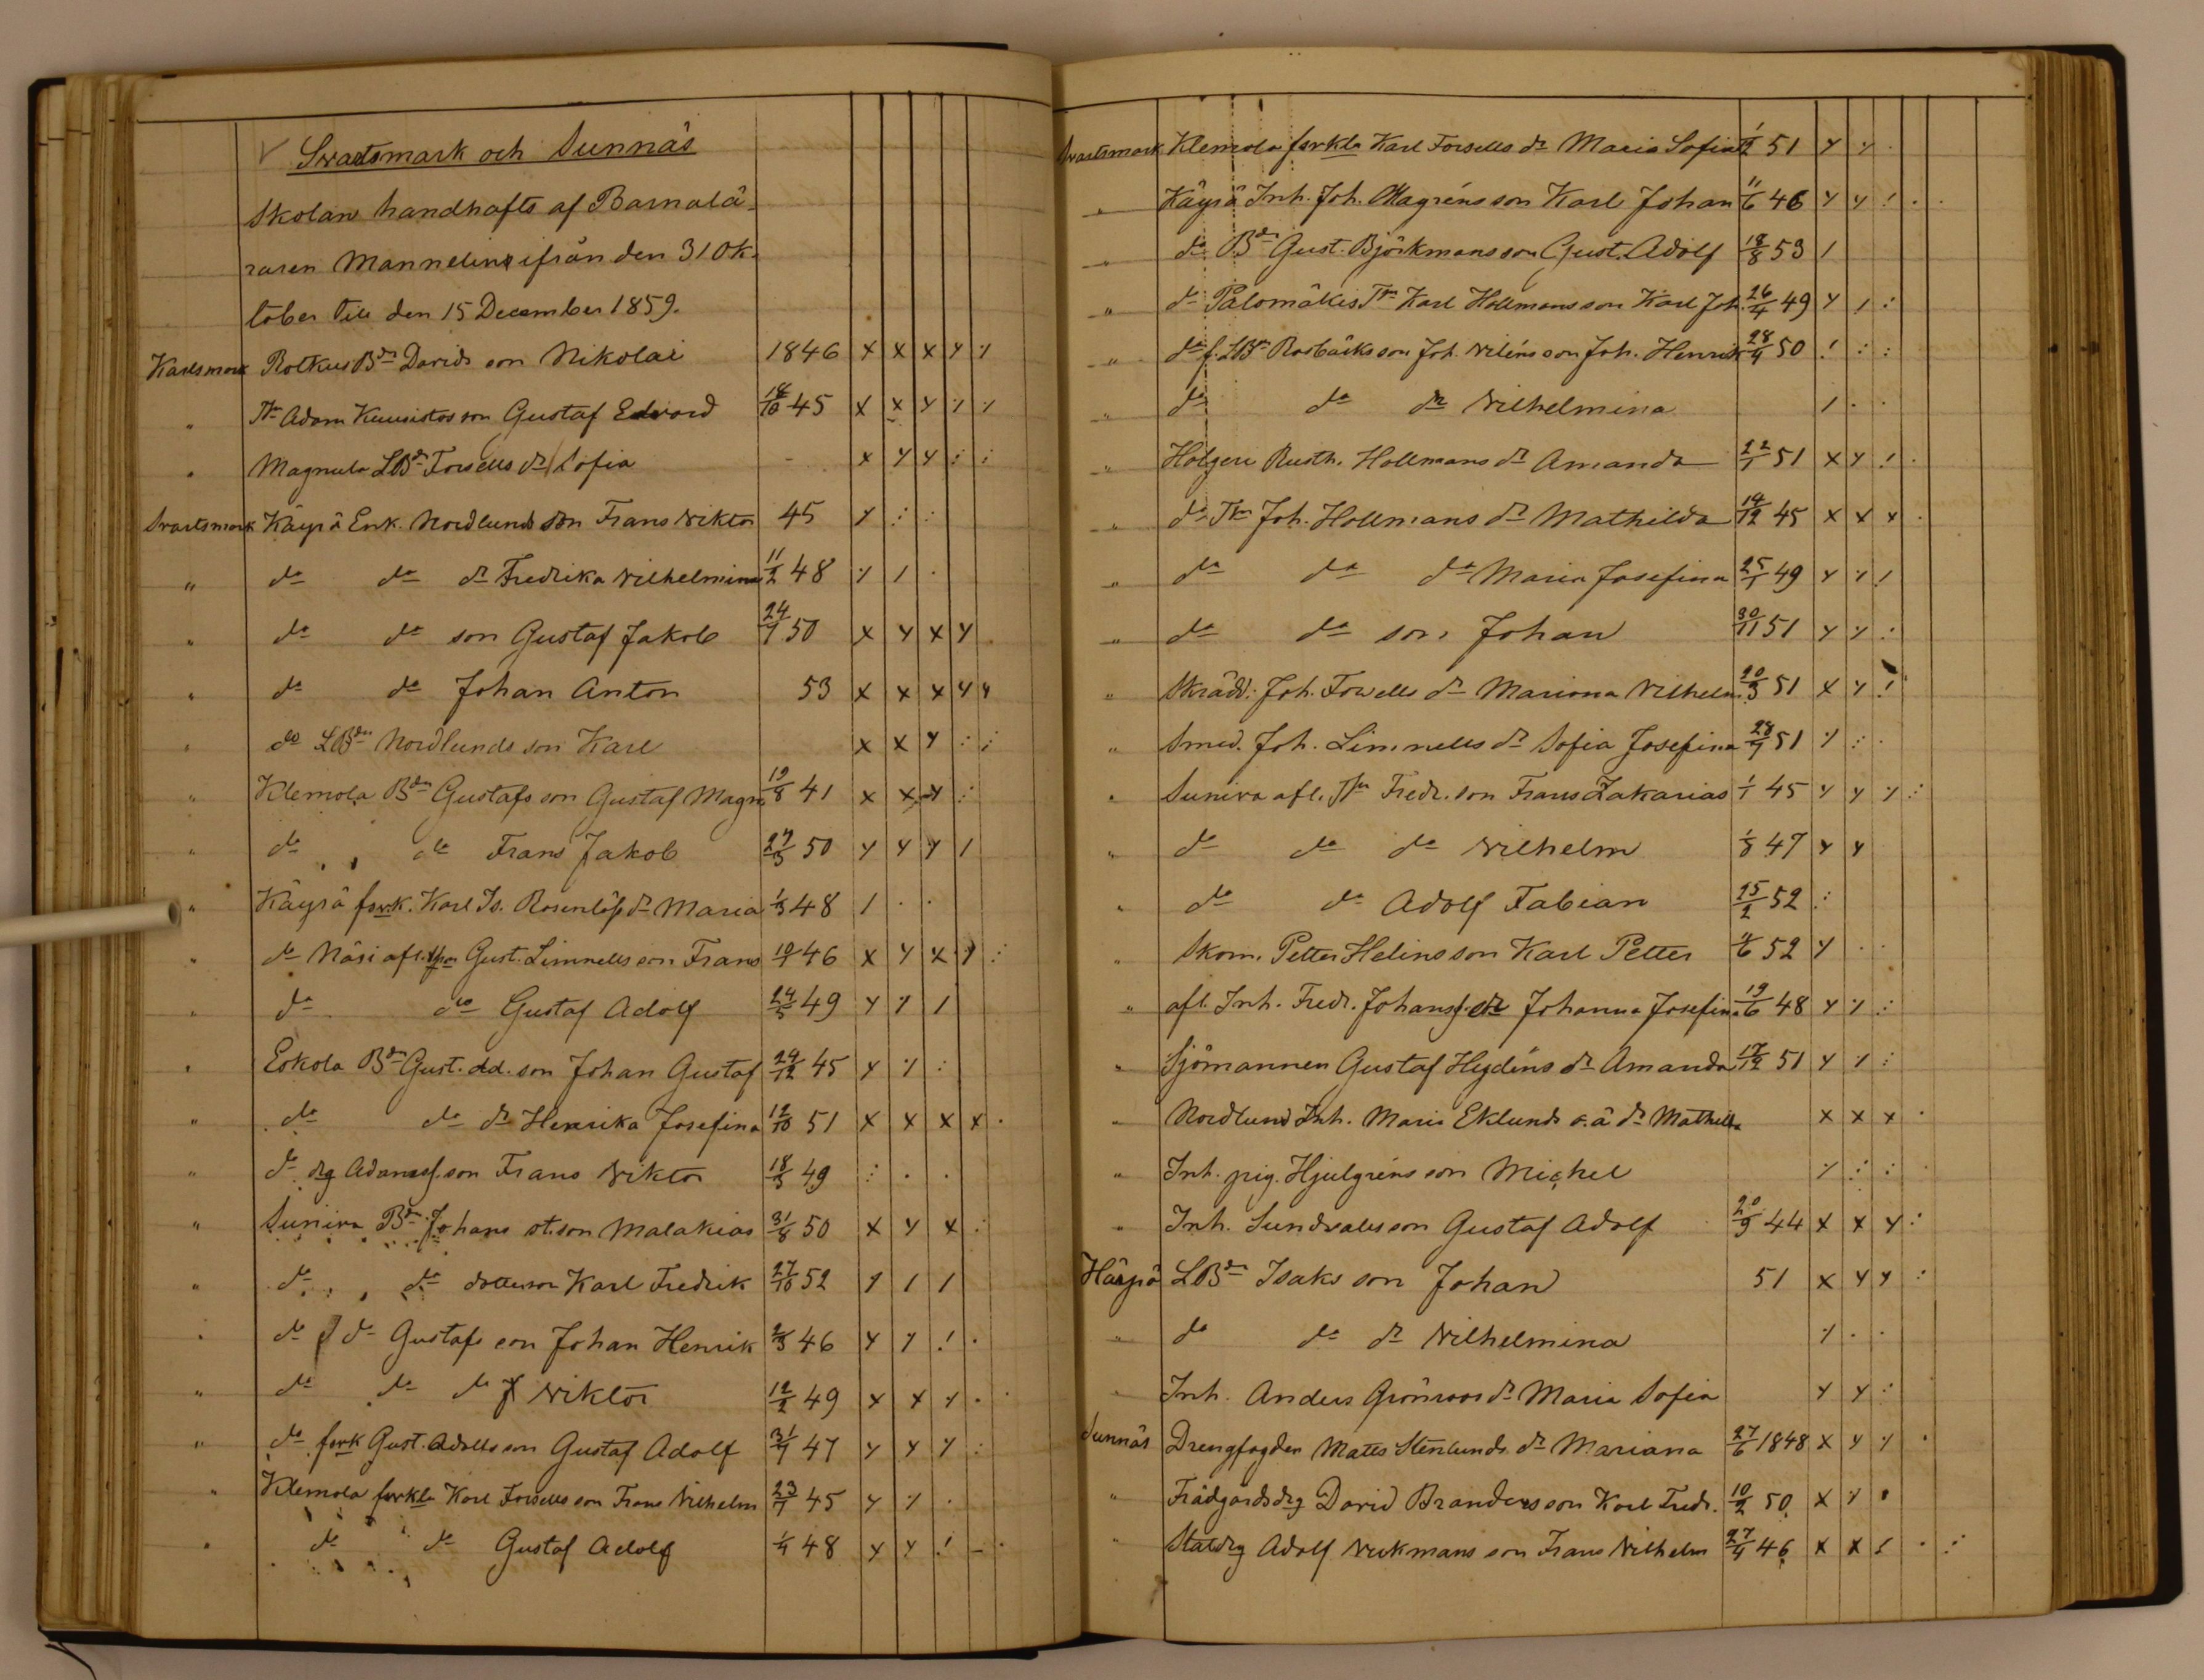 Svartsmark och Sunnäs
Skolan handhafts af Barnalä-
raren Mannelin ifrån den 31 Ok-
tober till den 15 December 1859.
Karlsmark Rotkus Bdn Davids son Nikolai 1846 x x x y /
" Tr Adam Kuusistos son Gustaf Edvard 18/10 45 x x y / /
" Magnula LBdn Forsells dr Sofia - x y y : :
Svartsmark Käyrä Enk. Nordlunds son Frans Viktor 45 y : :
" do do dr Fredrika Vilhelmina 11/2 48 / / .
" do do son Gustaf Jakob 24/7 50 x y x y
" do do Johan Anton 53 x x x y y
" do LBdn Nordlunds son Karl x x y : :
" Klemola Bdn Gustafs son Gustaf Magn. 19/8 41 x x y :
" do do Frans Jakob 27/3 50 y y y /
" Käyrä Karl Is. Rosenlöfs dr Maria 1/3 48 / . .
" do Näsi afl. Gust. Limnells son Frans 10/7 46 x y x y :
" do do Gustaf Adolf 24/5 49 y / /
" Eskola Bdn Gust. dd. son Johan Gustaf 24/12 45 y / :
" do do dr Henrika Josefina 12/10 51 x x x x .
" do drg Adamss. son Frans Viktor 18/3 49 : . .
" Sunira Bdn Johans st.son Malakias 31/8 50 x y x :
" do do dotterson Karl Fredrik 27/10 52 / / /
" do do Gustafs son Johan Henrik 2/3 46 y / ! .
" do do do Viktor 12/2 49 x x / . .
" do Gust. Adolfs son Gustaf Adolf 31/7 47 y y y :
" Klemola Karl Forsells son Frans Vilhelm 23/7 45 y / .
" do do Gustaf Adolf 1/4 48 y y ! - .
Svartsmark Klemola Karl Forsells dr Maria Sofia 1/2 51 y y .
" Käyrä Inh. Joh. Magréns son Karl Johan 11/6 46 y y ! . .
" do Bdn Gust. Björkmans son Gust. Adolf 18/8 53 /
" do Palomäkis Tr Karl Hollmans son Karl Joh. 26/4 49 y / :
" do f. LBn Rosbäcks son Joh. Viléns son Joh. Henrik 28/4 50 ! : :
" do do dr Vilhelmina / . .
" Holgeri Rusth. Hollmans dr Amanda 22/1 51 x y ! .
" do Tr Joh. Hollmans dr Mathilda 14/12 45 x x x .
" do do do Maria Josefina 25/1 49 y / !
" do do son Johan 30/11 51 y / :
" Skrädd. Joh. Forsells dr Mariana Vilhelm. 20/3 51 x y !
" Smed. Joh. Limnells dr Sofia Josefina 28/7 51 / : .
" Sunira afl. Fredr. son Frans Zakarias 1/1 45 y y / :
" do do do Vilhelm 1/8 47 y y
" do do Adolf Fabian 15/2 52 :
" Skom. Petter Helins son Karl Petter 52 y . .
" afl. Inh. Fredr. Johanss. dr Johanna Josefina 19/6 48 y / :
" Sjömannen Gustaf Hydéns dr Amanda 17/12 51 y / :
" Nordlund Inh. Maria Eklunds o.ä dr Mathilda x x x .
" Inh. pig. Hjulgréns son Mickel / : : .
" Inh. Sundvalls son Gustaf Adolf 20/9 44 x x y :
Härpö LBdn Isaks son Johan 51 x y y :
" do do dr Vilhelmina / . .
" Inh. Anders Grönroos dr Maria Sofia y y :
Sunnäs Drengfogden Matts Stenlunds dr Mariana 27/6 1848 x y / .
" Trädgårdsdrg David Branders son Karl Fredr. 10/2 50 x / .
" Staldrg Adolf Vickmans son Frans Vilhelm 27/4 46 x x ! . :